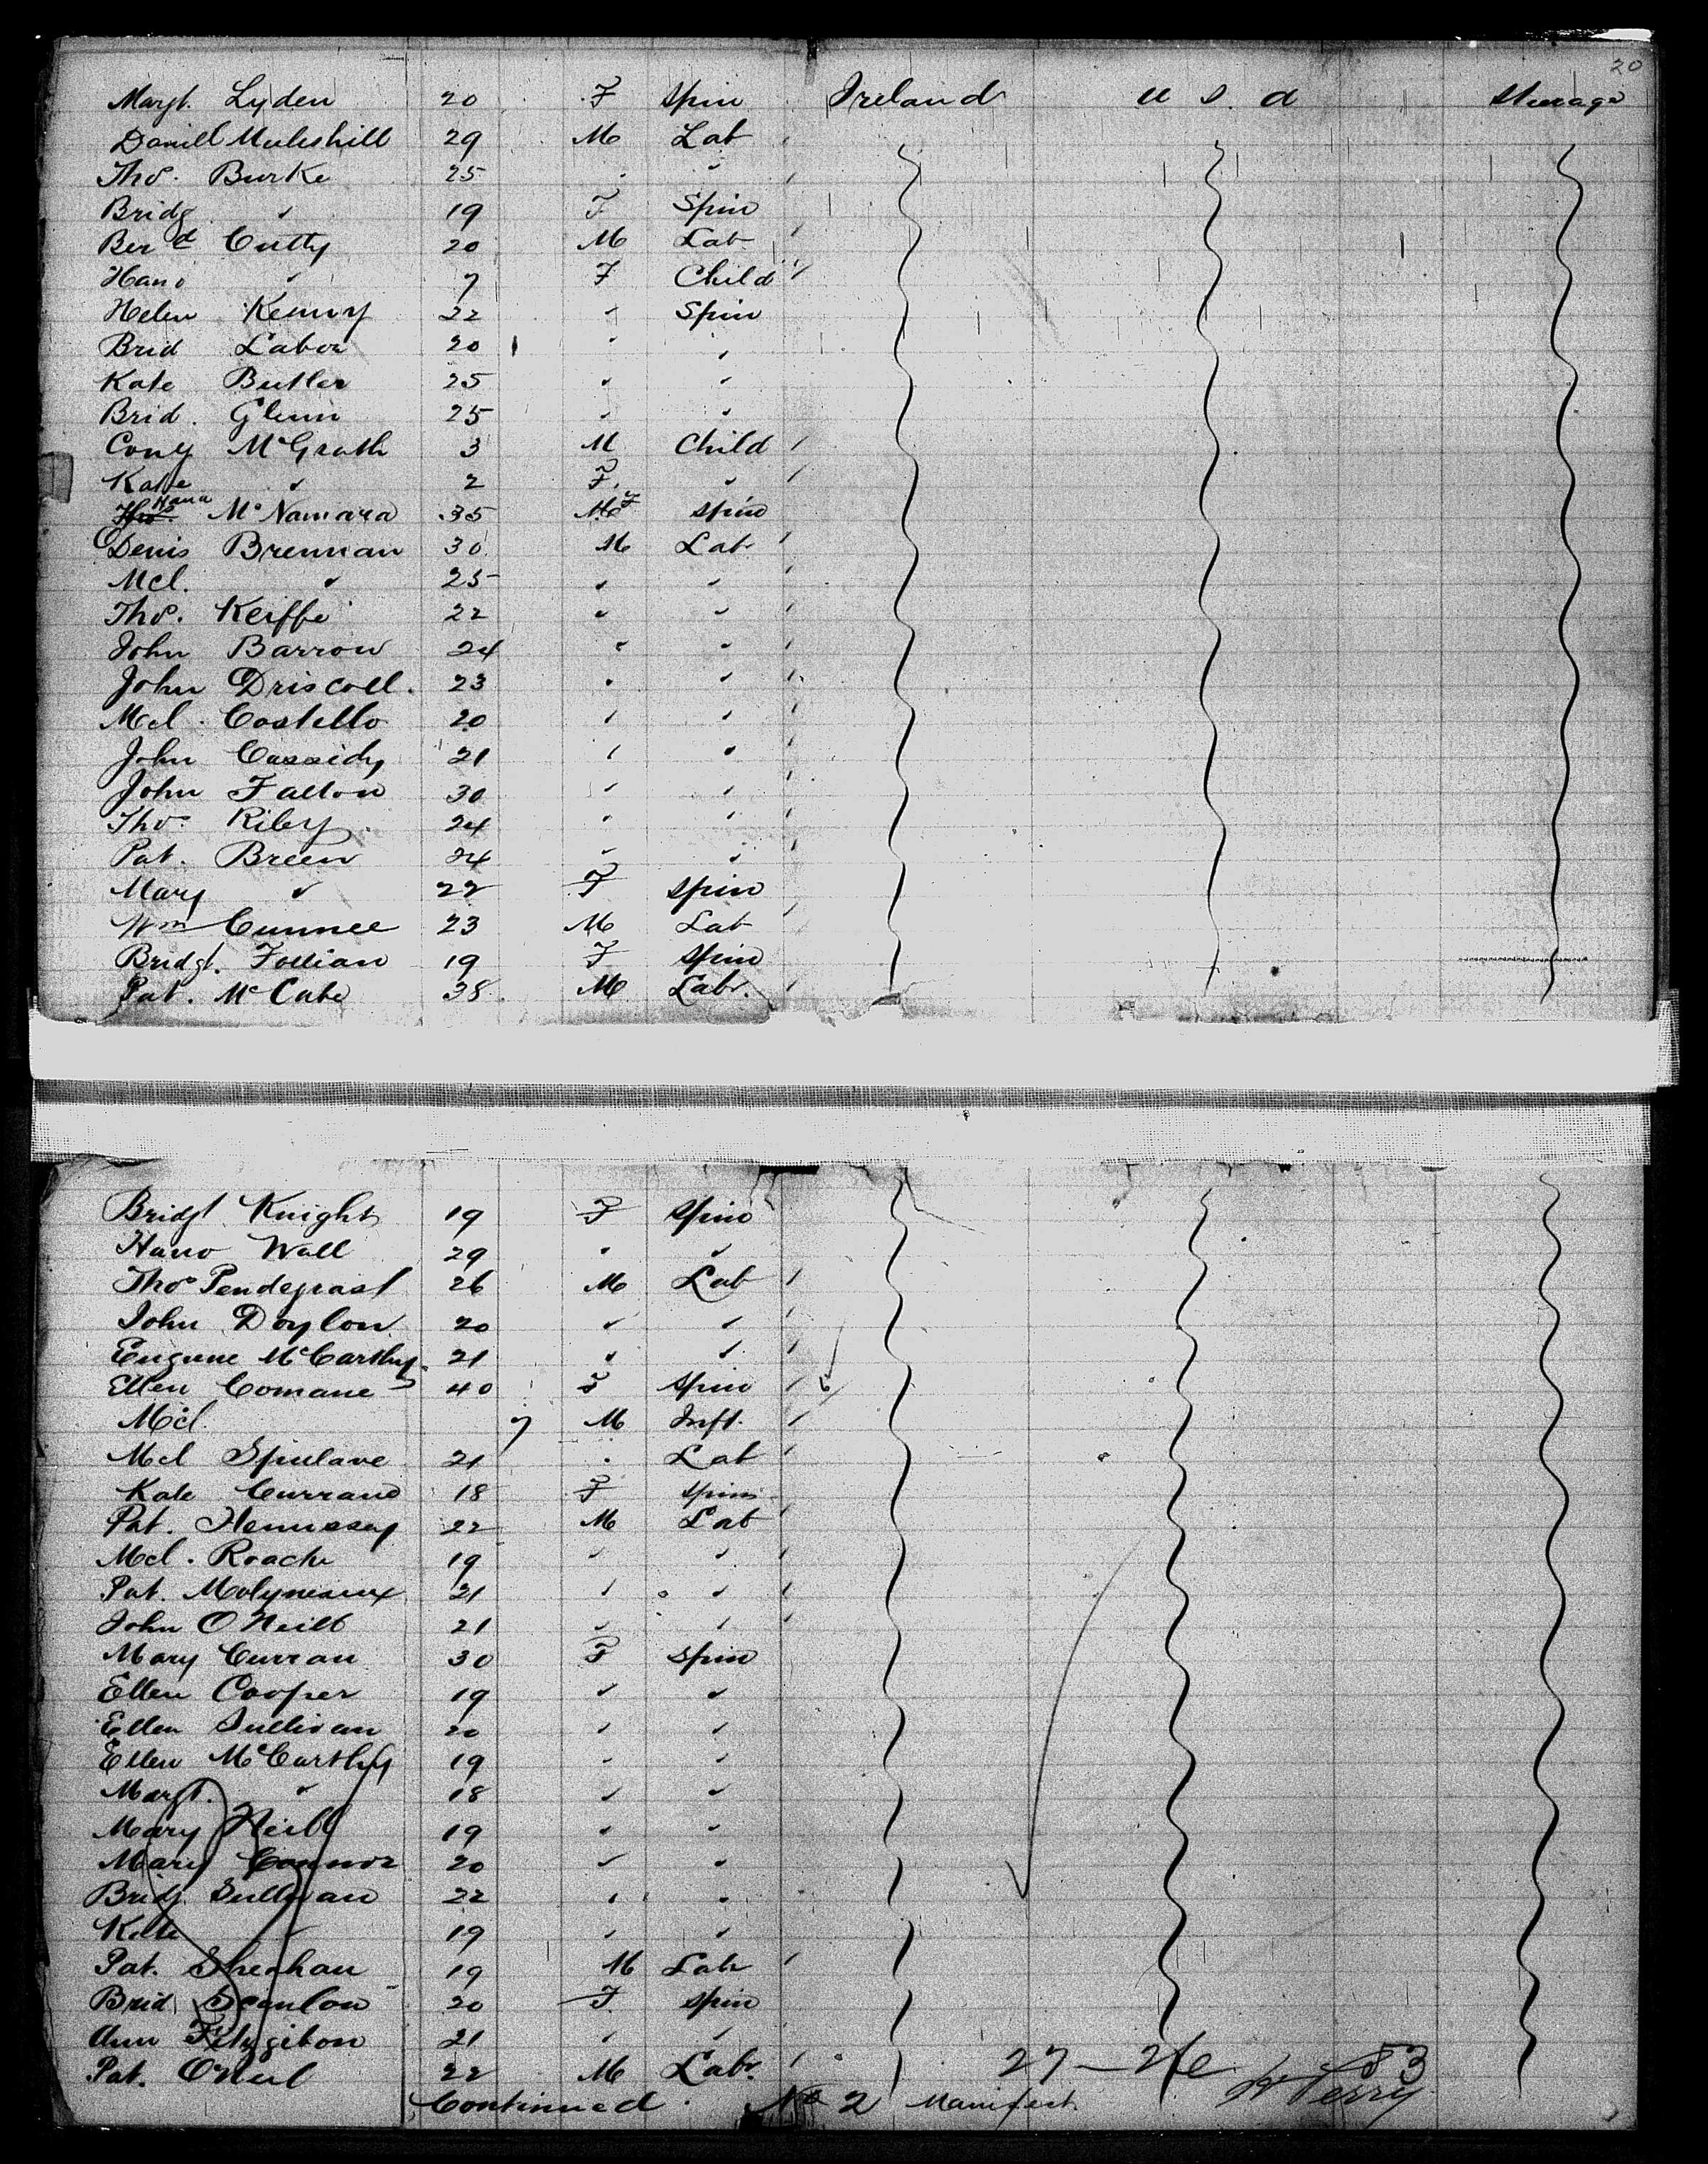 20
Margt. Lyden 20 F Spin Ireland U S. A Steerage
Daniell Muleshill 29 M Lab
Thos. Burke 25 " "
Bridg " 19 F Spin
Berd Cutty 20 M Lab
Hano " 7 F Child
Helen Kenny 22 " Spin
Brid Labor 20 " "
Kate Butler 25 " "
Brid. Glenn 25 " "
Cony McGrath 3 M Child
Kate " 2 F "
Hana McNamara 35 F Spin
Denis Brennan 30 M Lab
Mcl. " 25 " "
Thos. Keiffe 22 " "
John Barrow 24 " "
John Driscoll. 23 " "
Mcl. Costello 20 " "
John Cassidy 21 " "
John Fallon 30 " "
Thos. Riley 24 " "
Pat. Breen 24 " "
Mary " 22 F Spin
Wm Cunnee 23 M Lab
Bridgt. Follian 19 F Spin
Pat. McCabe 38 M Labr.
Bridgt Knight 19 F Spin
Hano Wall 29 " "
Thos Pendegrast 26 M Lab
John Doylon 20 " "
Eugene McCarthy 21 " "
Ellen Comane 40 F Spin
Mcl 7 M Inft.
Mcl Spulane 21 " Lab
Kate Currane 18 F Spin
Pat. Hennessey 22 M Lab
Mcl. Roache 19 " "
Pat. Molyneaux 21 " "
John O Neill 21 " "
Mary Curran 30 F Spin
Ellen Cooper 19 " "
Ellen Sullivan 20 " "
Ellen McCarthy 19 " "
Margt. " 18 " "
Mary Neill 19 " "
Mary Connor 20 " "
Bridg. Sullivan 22 " "
Kate " 19 " "
Pat. Sheahan 19 M Lab
Brid Scanlon 20 F Spin
Ann Fitzgibon 21 " "
Pat. O'Neil 22 M Labr.
27-26 53
Continued. No 2 Manifest. Perry